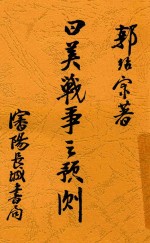 郭绍宗著
日美戰爭之預測
瀋陽長城書局